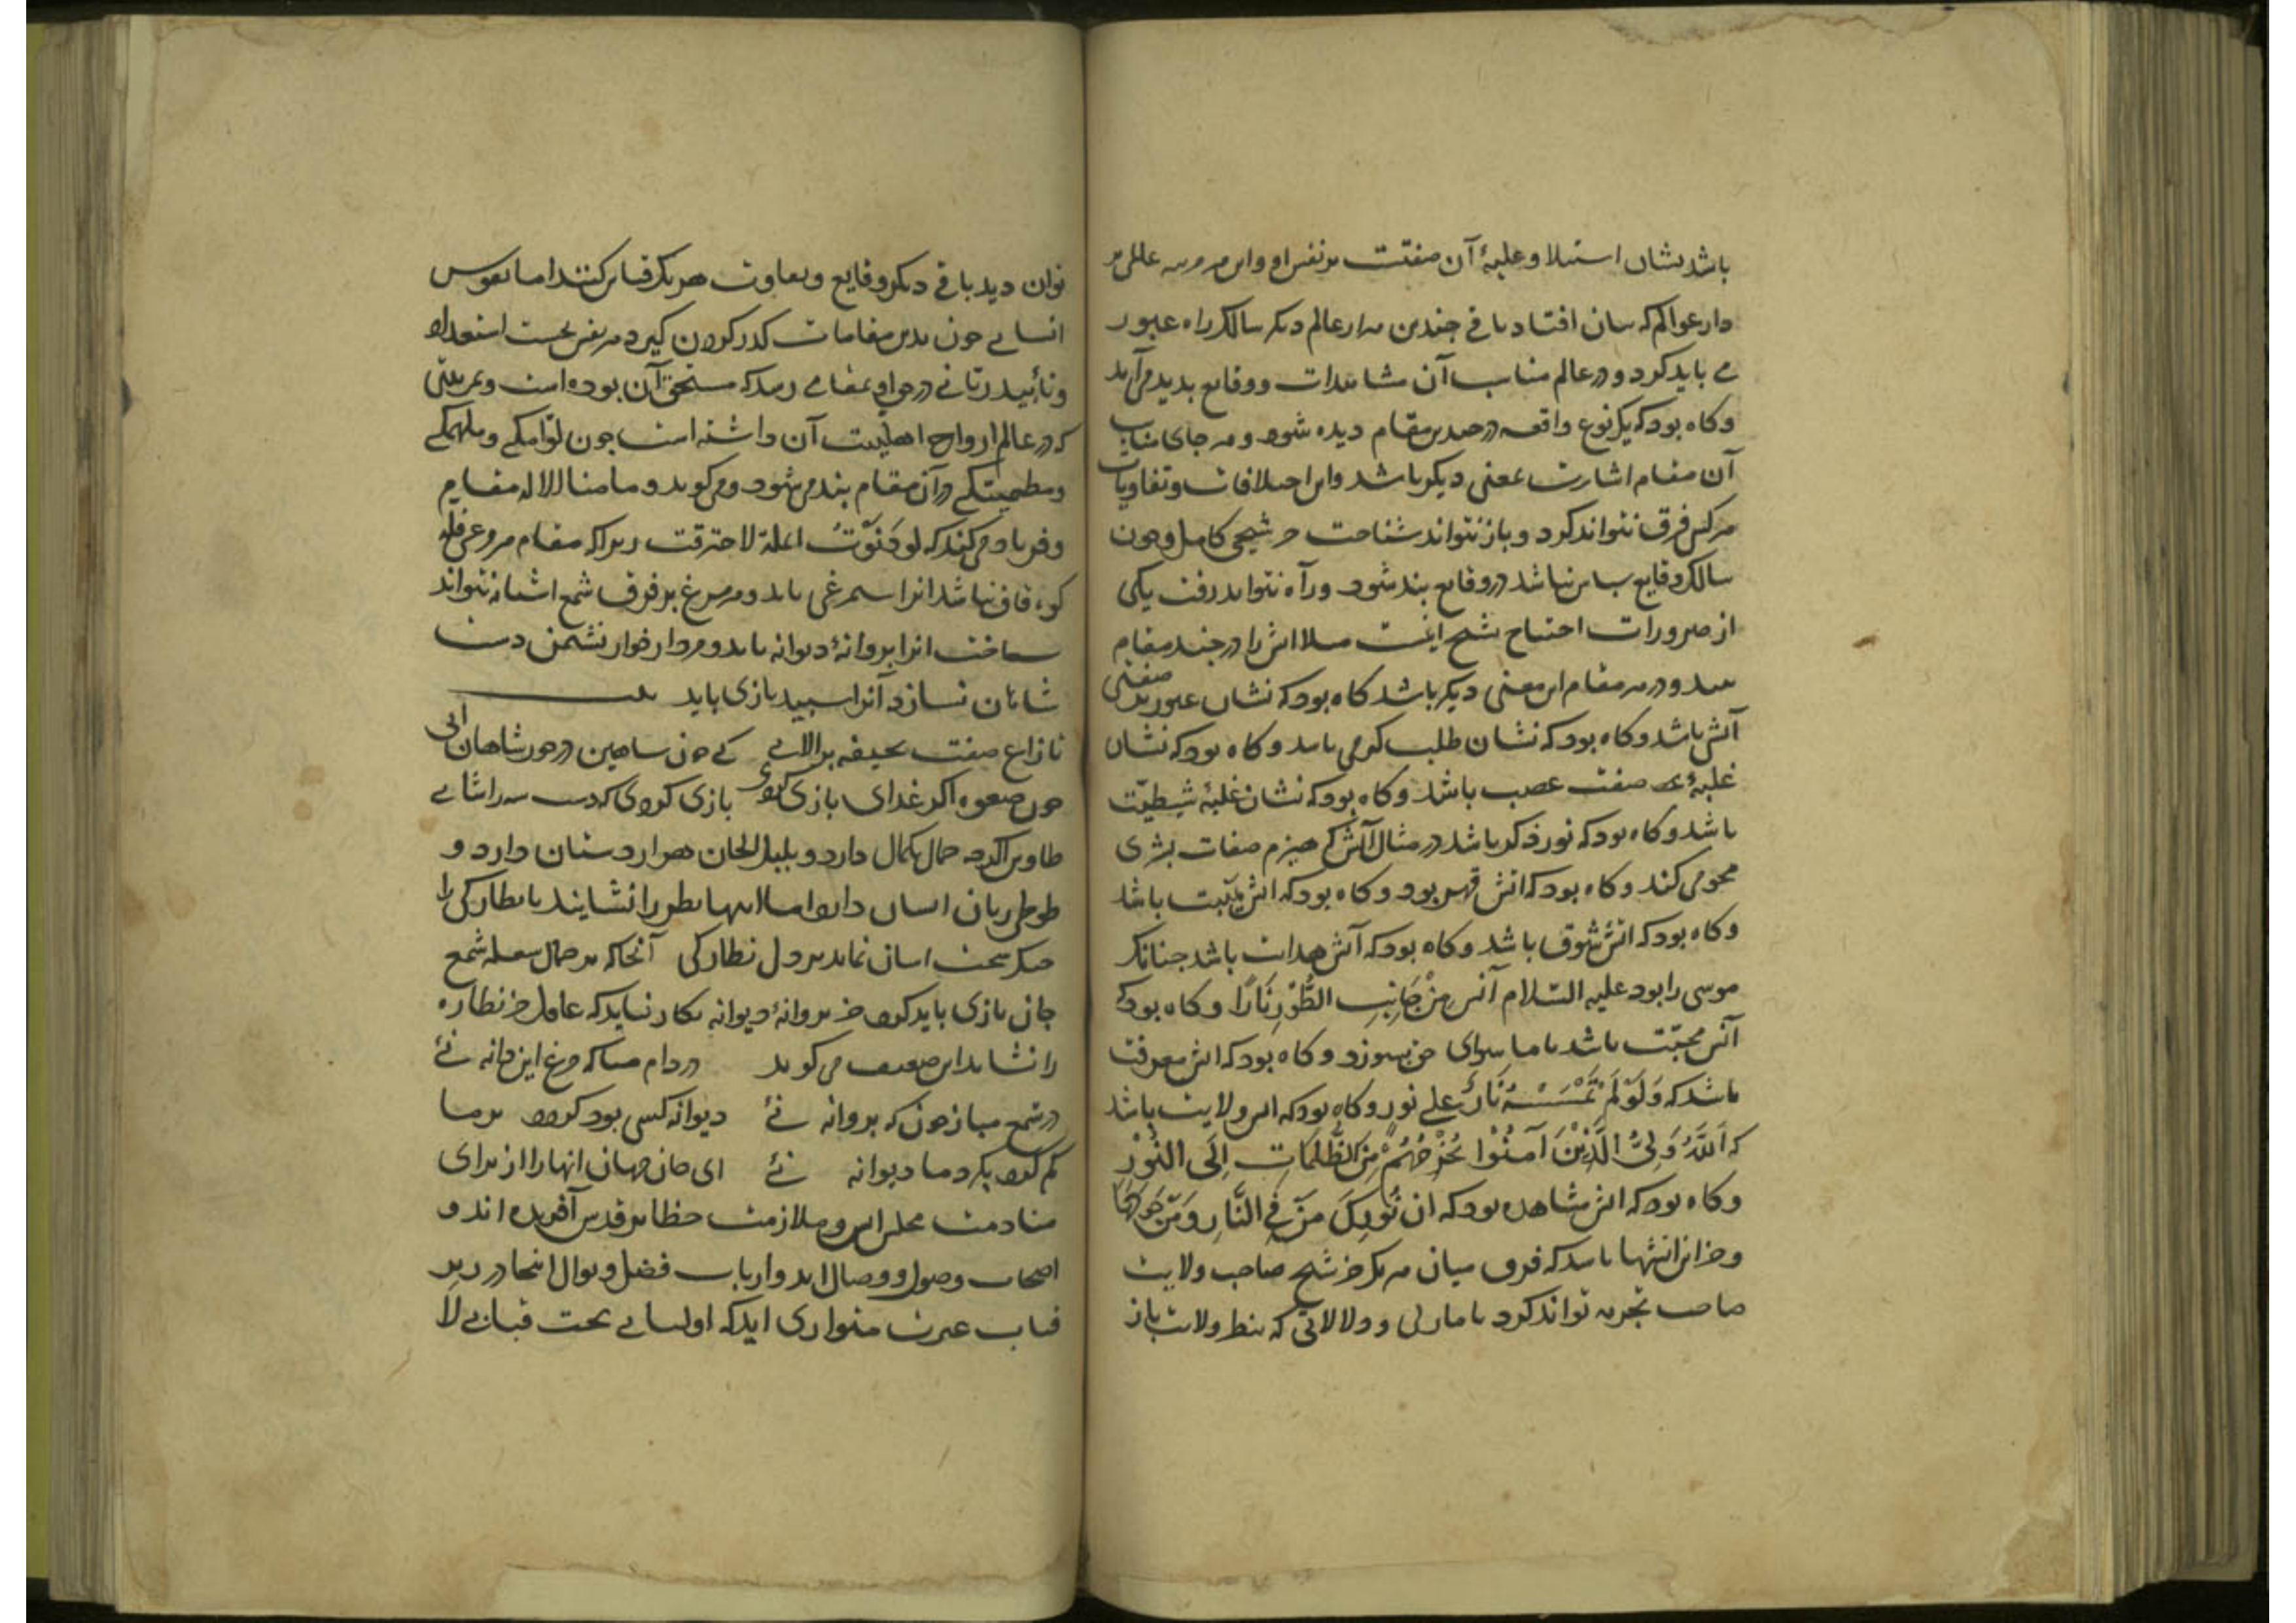 باشد نشان استیلا و غلبهٔ آن صفتست بر نفس او و این مرتبه
دار عوالم که سان افتاد باقی چندین هزار عالم دیگر سالک را عبور
می باید کرد و در عالم مناسب آن مشاهدات و وقایع بدید می آید
وکاه بود که یک نوع واقعه در صد مقام دیده شود و بهر جای مناسب
آن مقام اشارت بمعنی دیکر باشد و این اختلافات و تفاوتات
هر کس فرق نتواند کرد و باز نتواند شناخت جز شیخی کامل و چون
سالک وقایع شناس نباشد در وقایع بند شود و راه نتواند رفت یکی
از ضرورات احتیاج بشیخ اینست مثلا اتش را در چند مقام
بیند و در هر مقام این معنی دیکر باشد کاه بود که نشان عبور بر صفتی
آتش باشد و کاه بود که نشان طلب کرمی باشد و کاه بود که نشان
غلبهٔ صفت غضب باشد و کاه بود که نشان غلبهٔ شیطنت
باشد و کاه بود که نور ذکر باشد در مثال آتش که هیزم صفات بشری
محو می کند و کاه بود که اتش قهر بود و کاه بود که اتش هیبت باشد
وکاه بود که اتش شوق باشد و کاه بود که آتش هدایت باشد چنانک
موسی را بود علیه السّلام آنس مِنْ جَانِبِ الطُّوْرِ نَارًا و کاه بود که
آتش محبّت باشد تا ما سوای حق بسوزد و کاه بود که اتش معرفت
باشد که وَلَوْ لَمْ تَمْسَسْهُ نَارٌ علی نور و کاه بود که اتش ولایت باشد
که اَللّٰهُ وَلِیُّ الَّذِیْنَ آمَنُوْا یُخْرِجُهُمْ مِنَ الظُّلُمَاتِ اِلَی النُّوْرِ
وکاه بود که اتش مشاهده بود که ان بُورِکَ مَنْ فِی النَّارِ وَمَنْ حَوْلَهَا
و جز این اتشها باشد که فرق میان هر یک جز شیخ صاحب ولایت
صاحب تجربه تواند کرد تا مارانی و دلالاتی که بنظر ولایت باز
توان دید باقی دیکر وقایع و تفاوت هر یک قیاس کنند اما نفوس
انسانی چون بدین مقامات کذر کردن کیرد هر نفس بحسب استعداد
و تأیید ربّانی در خور او بمقامی رسد که مستحق آن بوده است و بمرتبتی
که در عالم ارواح اهلیت آن داشته است چون لوّامکی و ملهمکی
و مطمینکی در آن مقام بند می شود و می کوید و ما منا الا له مقام
و فریاد می کند که لو دَنَوْتُ انملة لاحترقت زیرا که مقام مرغی قله
کوه قاف نباشد انرا سیمرغی باید و هر مرغ بر فرق شمع اشیانه نتواند
ساخت انرا پروانهٔ دیوانه باید و مردار خوار نشیمن دست
شاهان نسازد آنرا سپید بازی باید بیت
تا زاغ صفت بجیفه بر الایی کی چون شاهین در خور شاهان ایی
چون صعوه اگر غذای بازی کردی بازی کردی که دست شه را شایی
طاوس اکرچه جمال بکمال دارد و بلبل الحان هزار دستان دارد و
طوطی زبان انسان دارد اما اینها نظر را نشایند یا نظارکی را
جکر سخت اسان نماید بر دل نظارکی آنجا که بر جمال شعله شمع
جان بازی باید کرد جز پروانهٔ دیوانه بکار نیاید که عاقل جز نظاره
را نشاید این ضعیف می کوید در دام میا که مرغ این دانه نئ
در شمع مبازجون که پروانه نئ دیوانه کسی بود کردد بر ما
کم کرد بکرد ما دیوانه نئ ای جان جهان انها را از برای
منادمت مجلس انس و ملازمت حظایر قدس آفریده اند و
اصحاب وصول و وصال اند و ارباب فضل و نوال اینجا در زیر
قباب غیرت متواری ایدکه اولیائی تحت قبابی لا